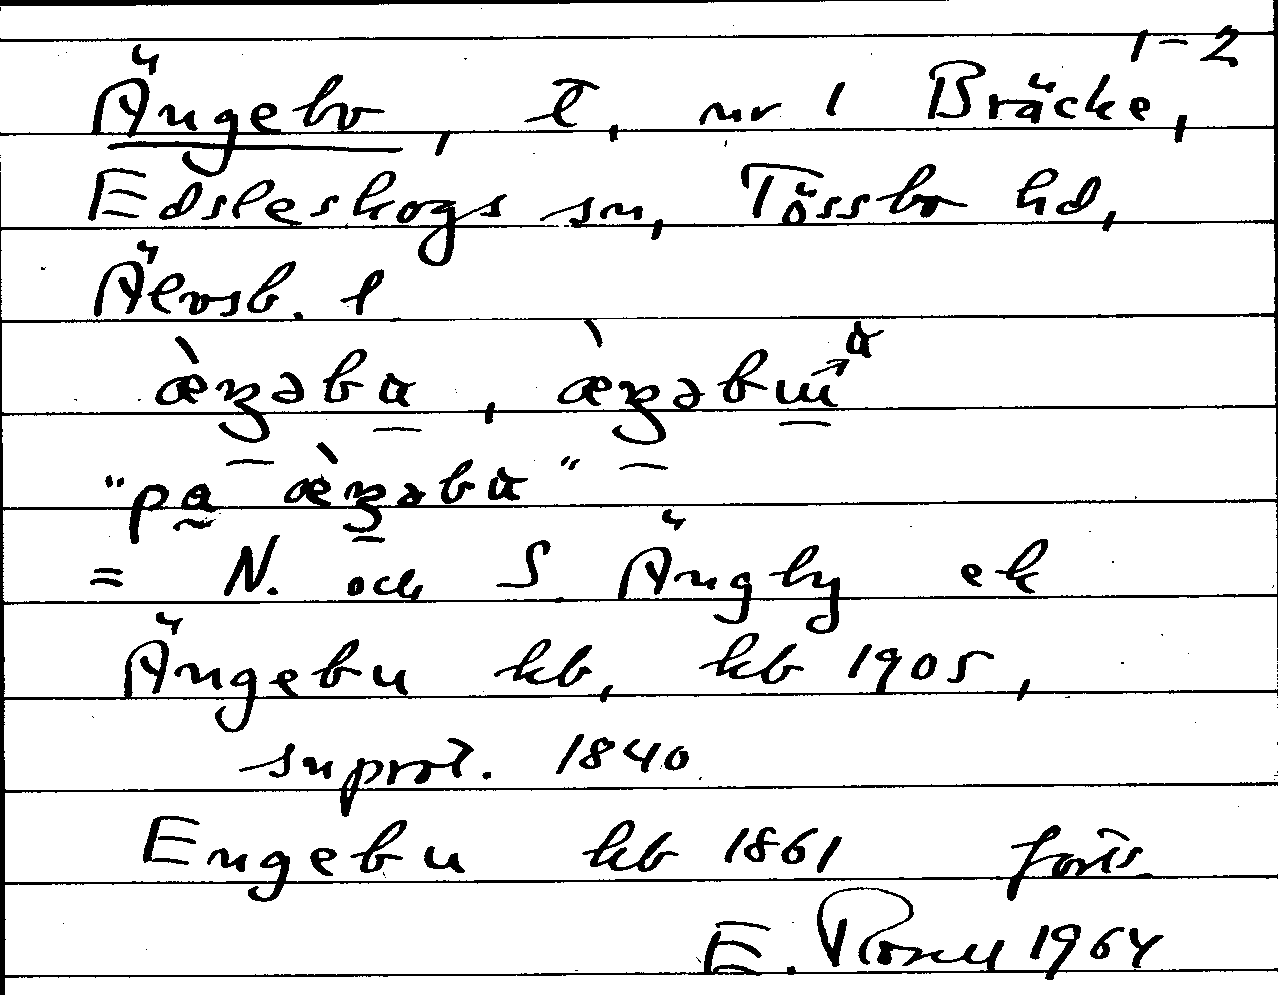 1-2
Ängebo, t, nr 1 Bräcke,
Edsleskogs sn, Tössbo hd,
Älvsb. l
"på
= N. och S. Ängby ek
Ängebu kb, kb 1905,
snprot. 1840
Engebu kb 1861 forts.
E. Rosell 1964